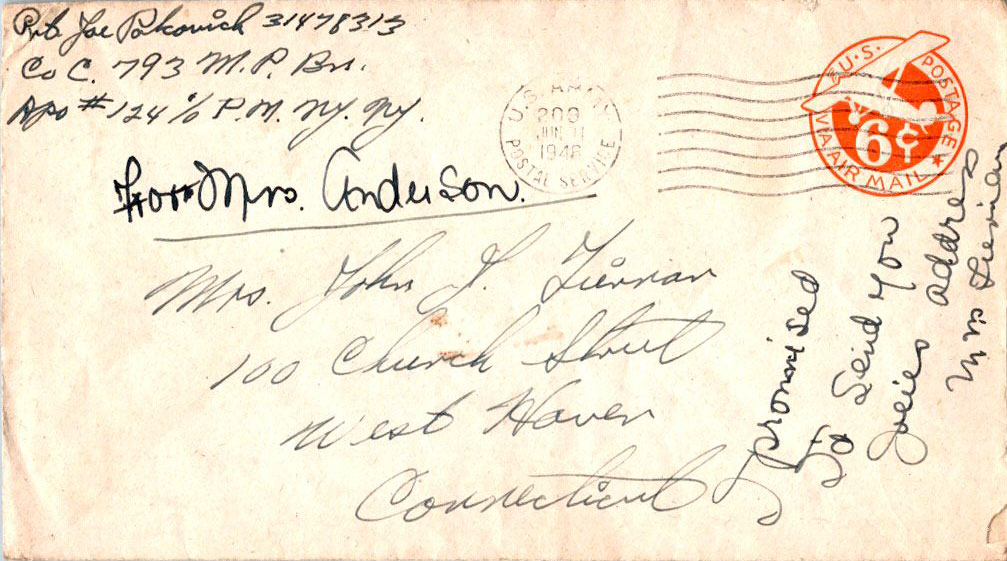 Pvt. Joe Pokovich 31478313
Co C. 793 M.P. Bn.
Apo # 124 c/o P.M. Ny. Ny.
From Mrs. Anderson.
U.S. ARMY
200
JUN 11
1946
POSTAL SERVICE
U.S. POSTAGE
6¢
VIA AIR MAIL
Mrs. John J. Tiernan
100 Church Street
West Haven
Connecticut
I promised
to Send you
Joeies address
Mrs Tiernan